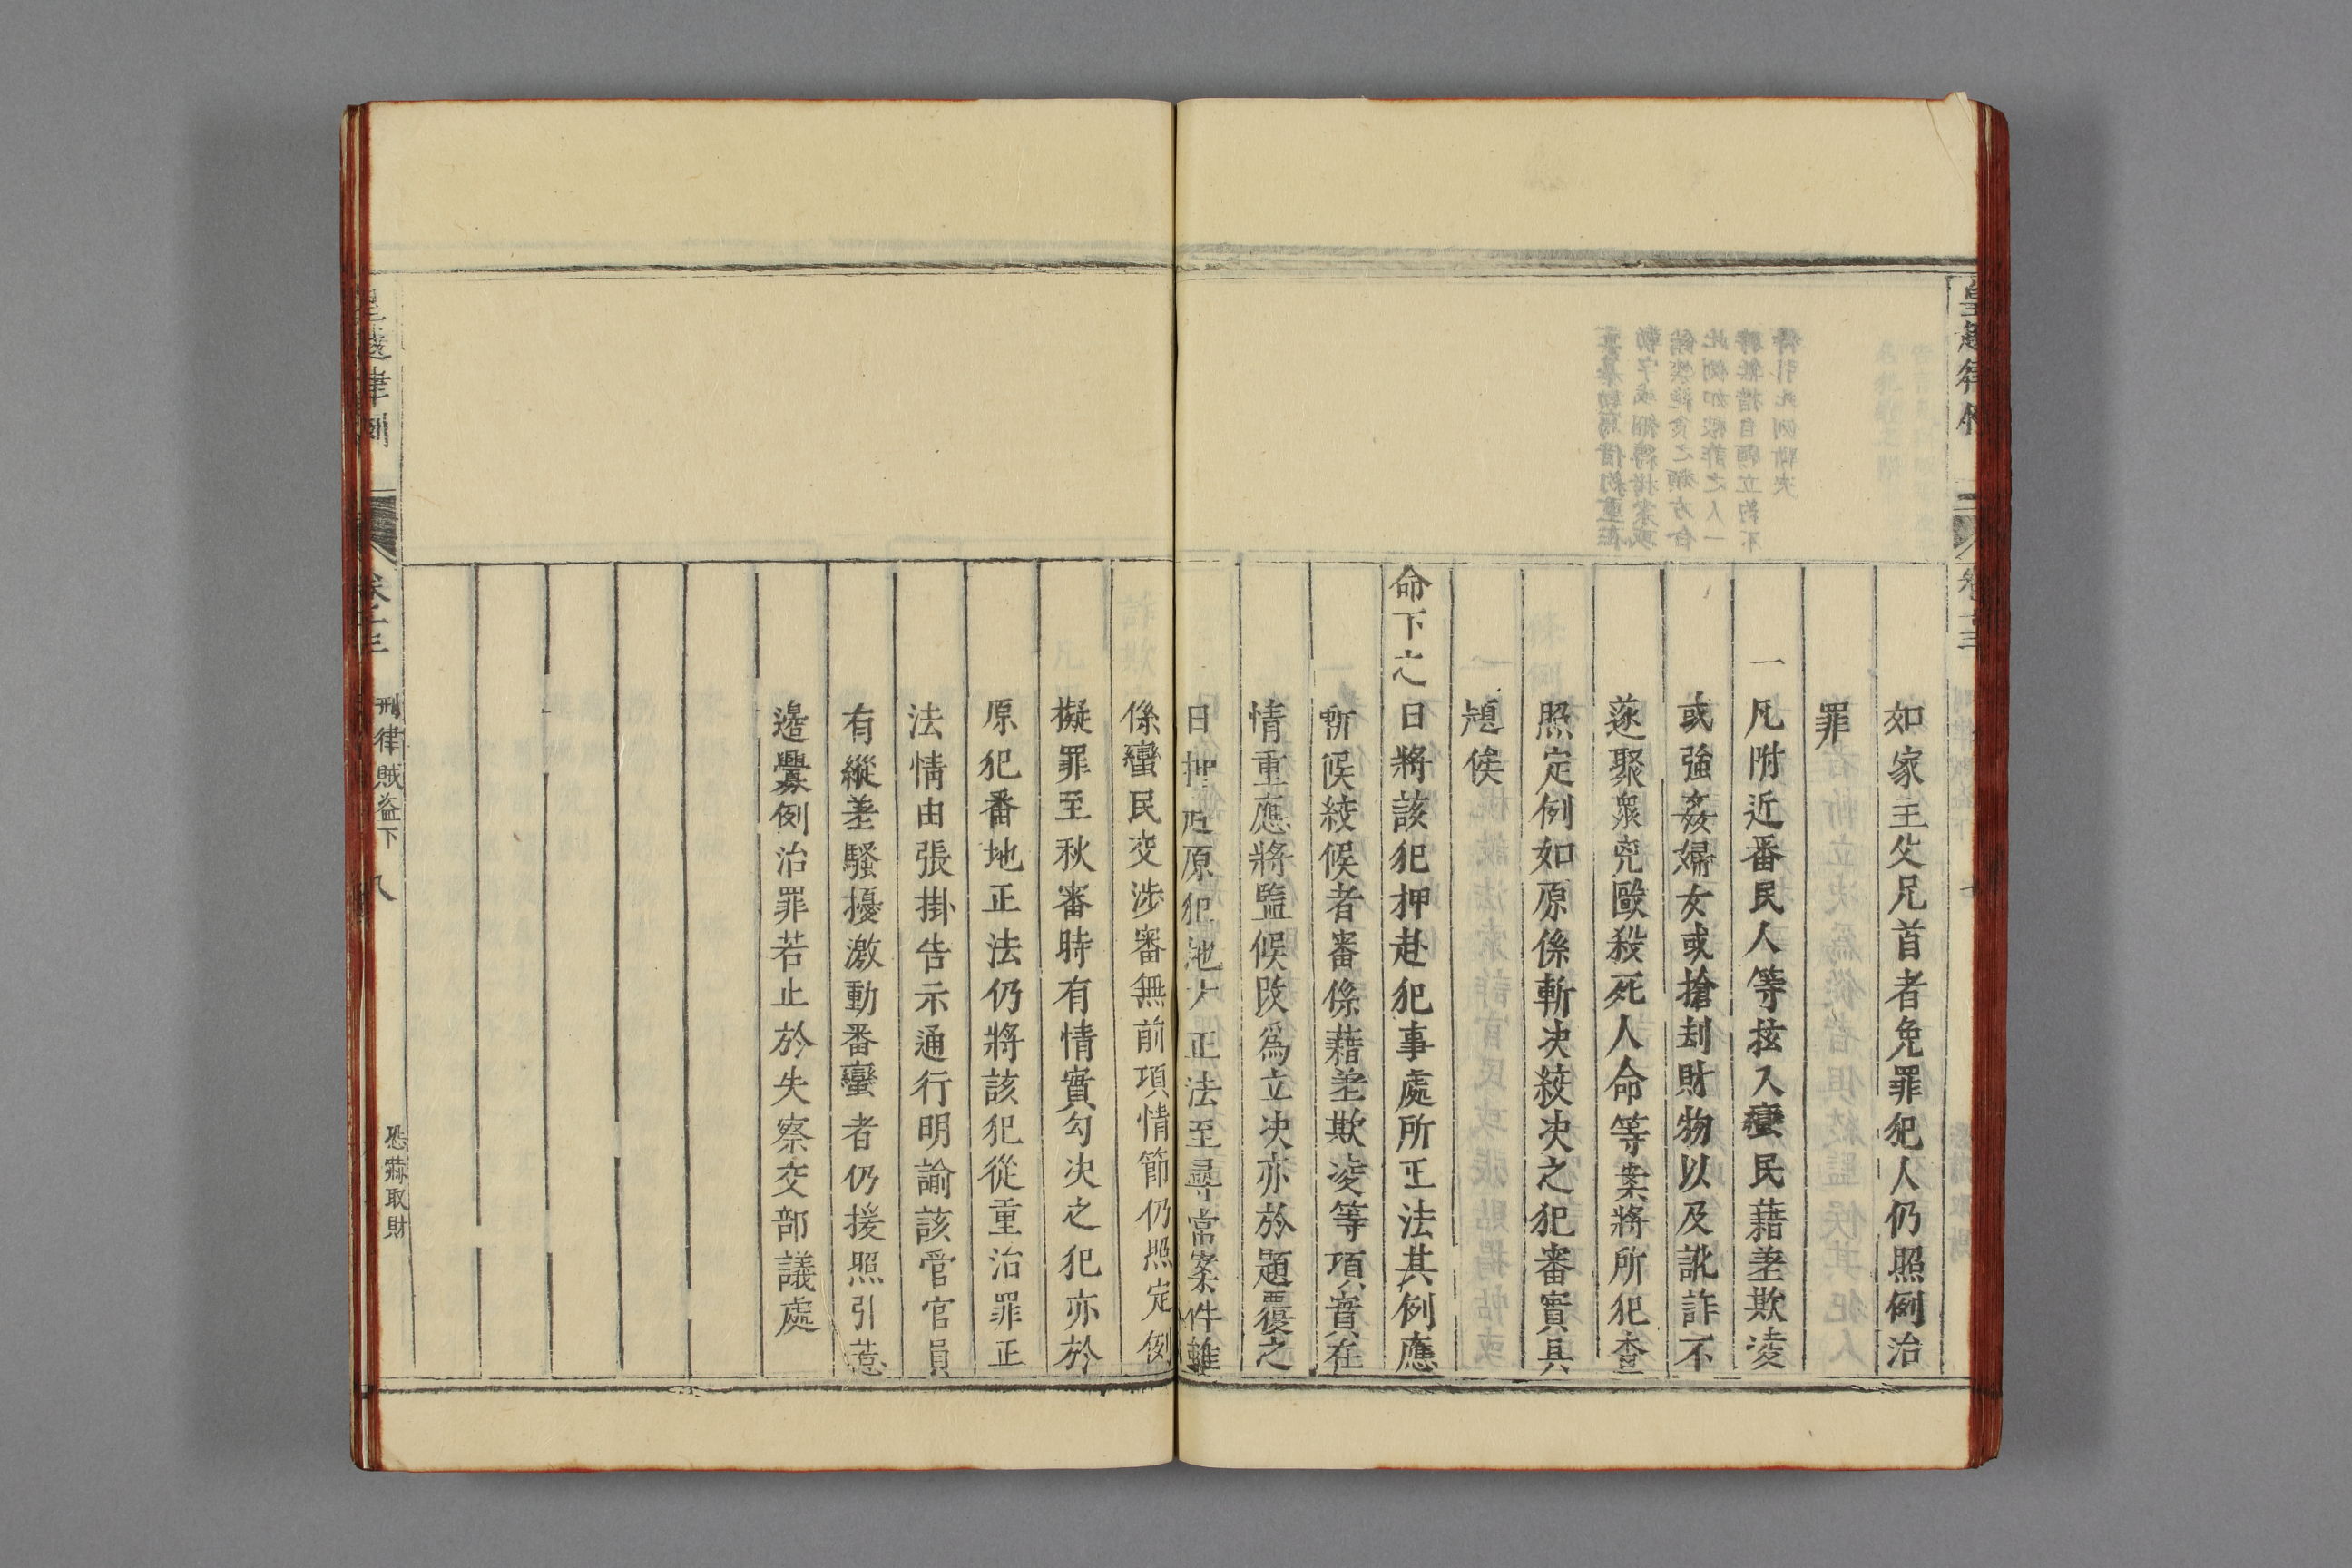 皇越律例
卷十三
如家主父兄首者免罪犯人仍照例治
罪
一凡附近番民人等接入蠻民藉差欺凌
或強姦婦女或搶刦財物以及訛詐不
遂聚衆兇毆殺死人命等案將所犯查
照定例如原係斬决絞决之犯審實具
題俟
命下之日將該犯押赴犯事處所正法其例應
斬候絞候者審係藉差欺凌等項實在
情重應將監候改爲立决亦於題覆之
日押赴原犯地方正法至尋常案件雖
係蠻民交涉審無前項情節仍照定例
擬罪至秋審時有情實勾决之犯亦於
原犯番地正法仍將該犯從重治罪正
法情由張掛告示通行明諭該管官員
有縱差騷擾激動番蠻者仍援照引惹
邉釁例治罪若止於失察交部議處
皇越律例
卷十三
刑律賊盗下
八
恐嚇取財